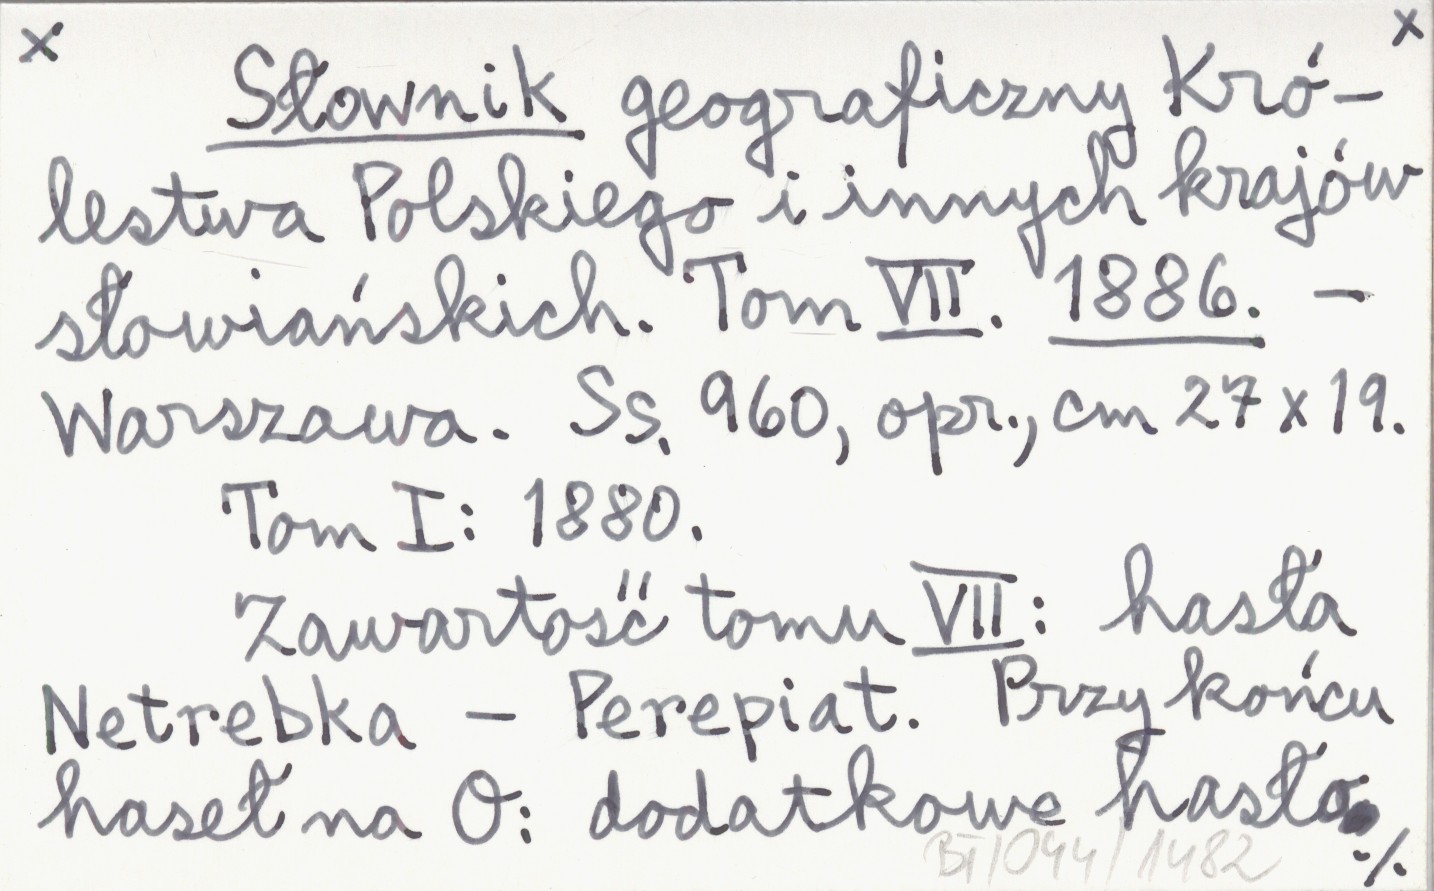 x x
Słownik geograficzny Kró-
lestwa Polskiego i innych krajów
słowiańskich. Tom VII. 1886. —
Warszawa. Ss. 960, opr., cm 27 x 19.
Tom I: 1880.
Zawartość tomu VII: hasła
Netrebka — Perepiat. Przy końcu
haseł na O: dodatkowe hasło
./.
BT/044/1482